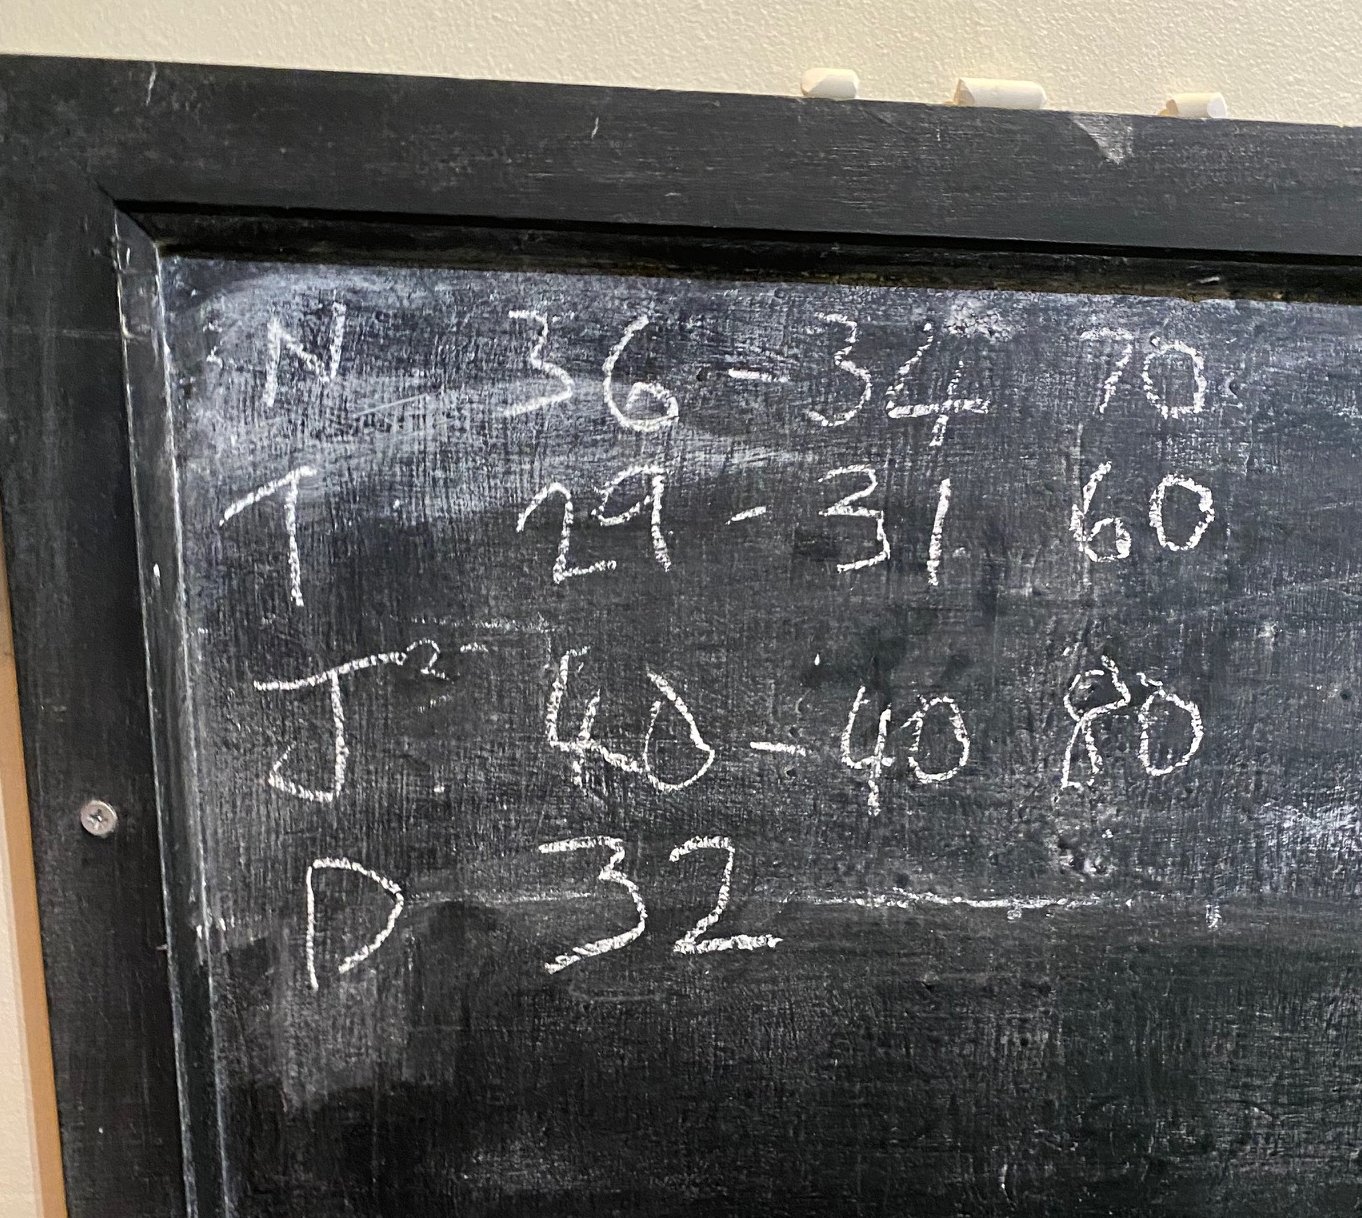 N 36 - 34 70
T 29 - 31 60
J 40 - 40 80
D 32